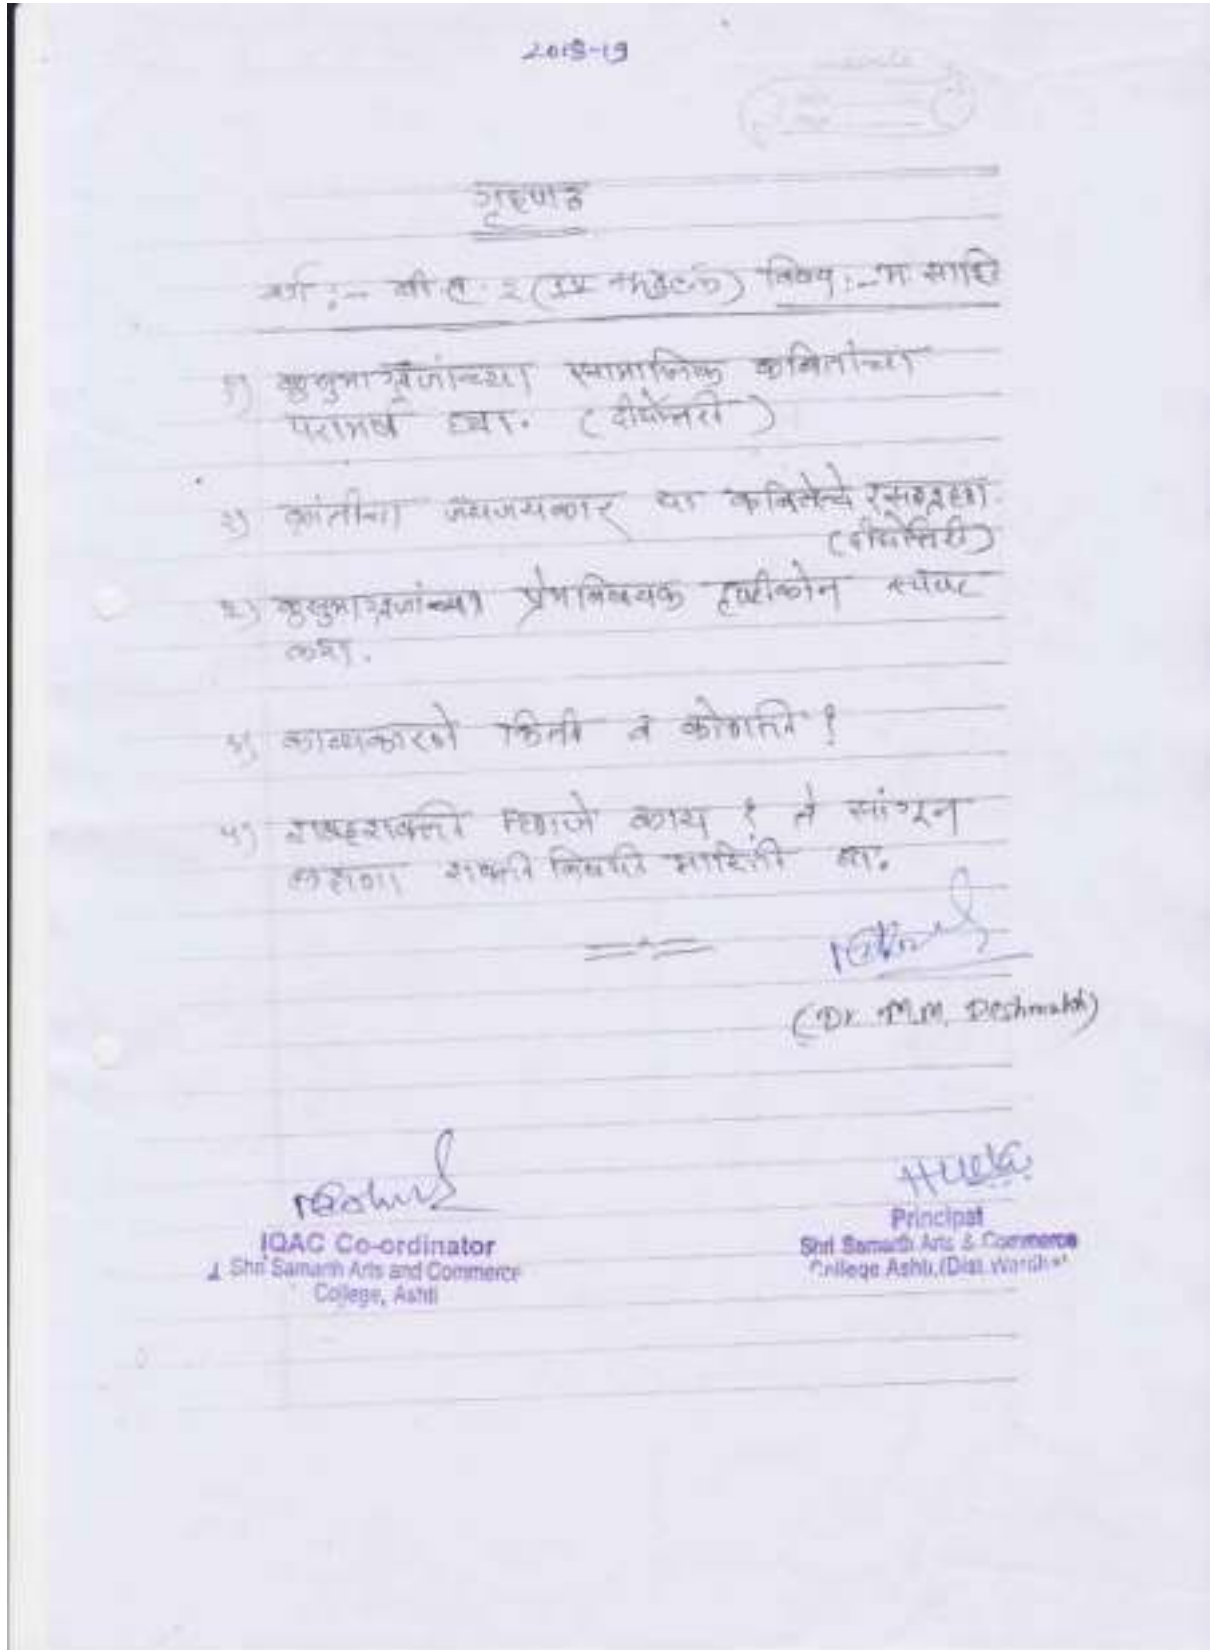 2018-19
गृहपाठ
वर्ग :- बी ए. २ ( ) विषय :- म. साहि
१) कुसुमाग्रजांच्या सामाजिक कवितांचा
परामर्ष घ्या. (दीर्घोत्तरी)
२) क्रांतीचा जयजयकार या कवितेचे रसग्रहण.
(दीर्घोत्तरी)
३) कुसुमाग्रजांच्या प्रेमविषयक दृष्टीकोन स्पष्ट
करा.
४) काव्यकारणे किती व कोणती ?
५) शब्दशक्ती म्हणजे काय ? ते सांगून
लक्षणा शक्ती विषयी माहिती द्या.
(Dr. M.M. Deshmukh)
IQAC Co-ordinator
Shri Samarth Arts and Commerce
College, Ashti
Principal
Shri Samarth Arts & Commerce
College Ashti, (Dist. Wardha)